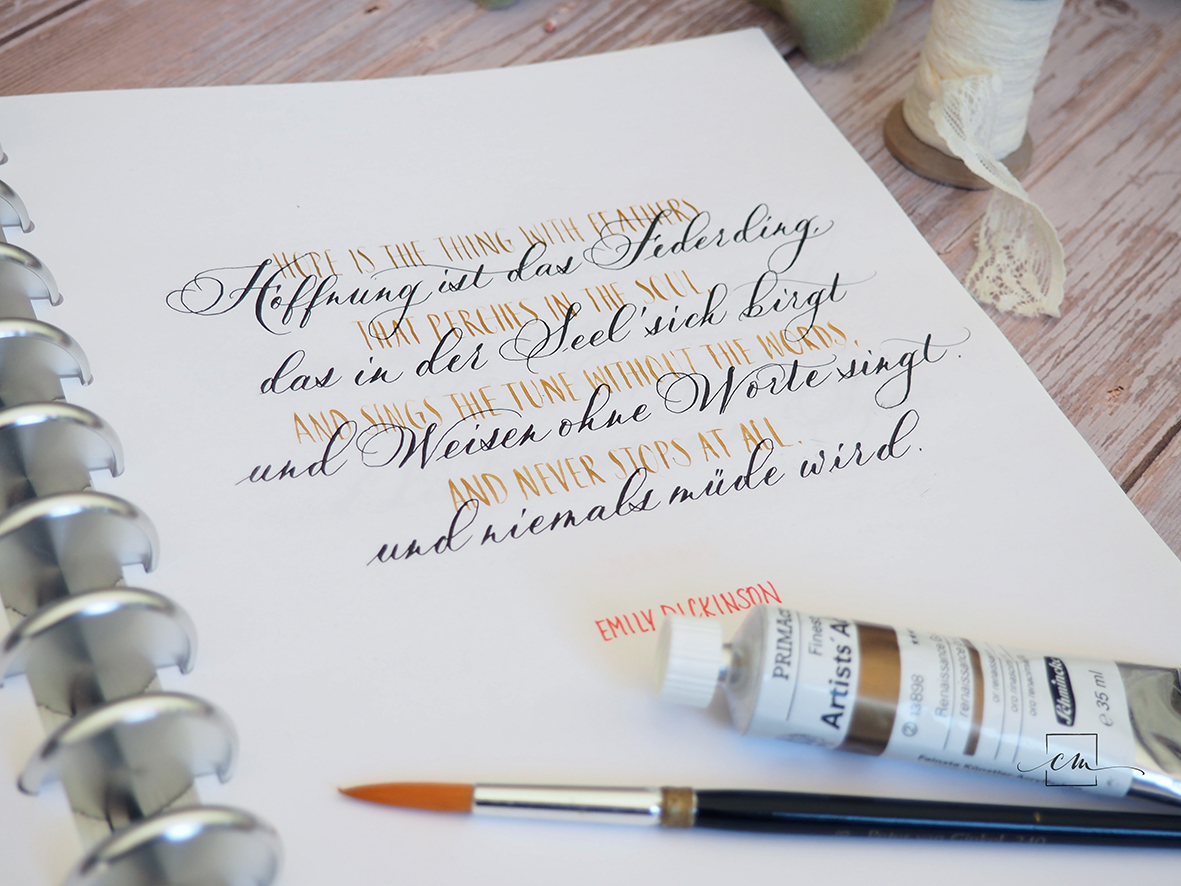 HOPE IS THE THING WITH FEATHERS
Hoffnung ist das Federding,
THAT PERCHES IN THE SOUL,
das in der Seel' sich birgt
AND SINGS THE TUNE WITHOUT THE WORDS,
und Weisen ohne Worte singt.
AND NEVER STOPS AT ALL.
und niemals müde wird.
EMILY DICKINSON
PRIMAc
Finest
Artists' A
13898
Renaissance G
renaissance
or renaissance
oro rinasci
oro renacim
Schmincke
e 35 ml
Feinste Künstler Acryl
cm